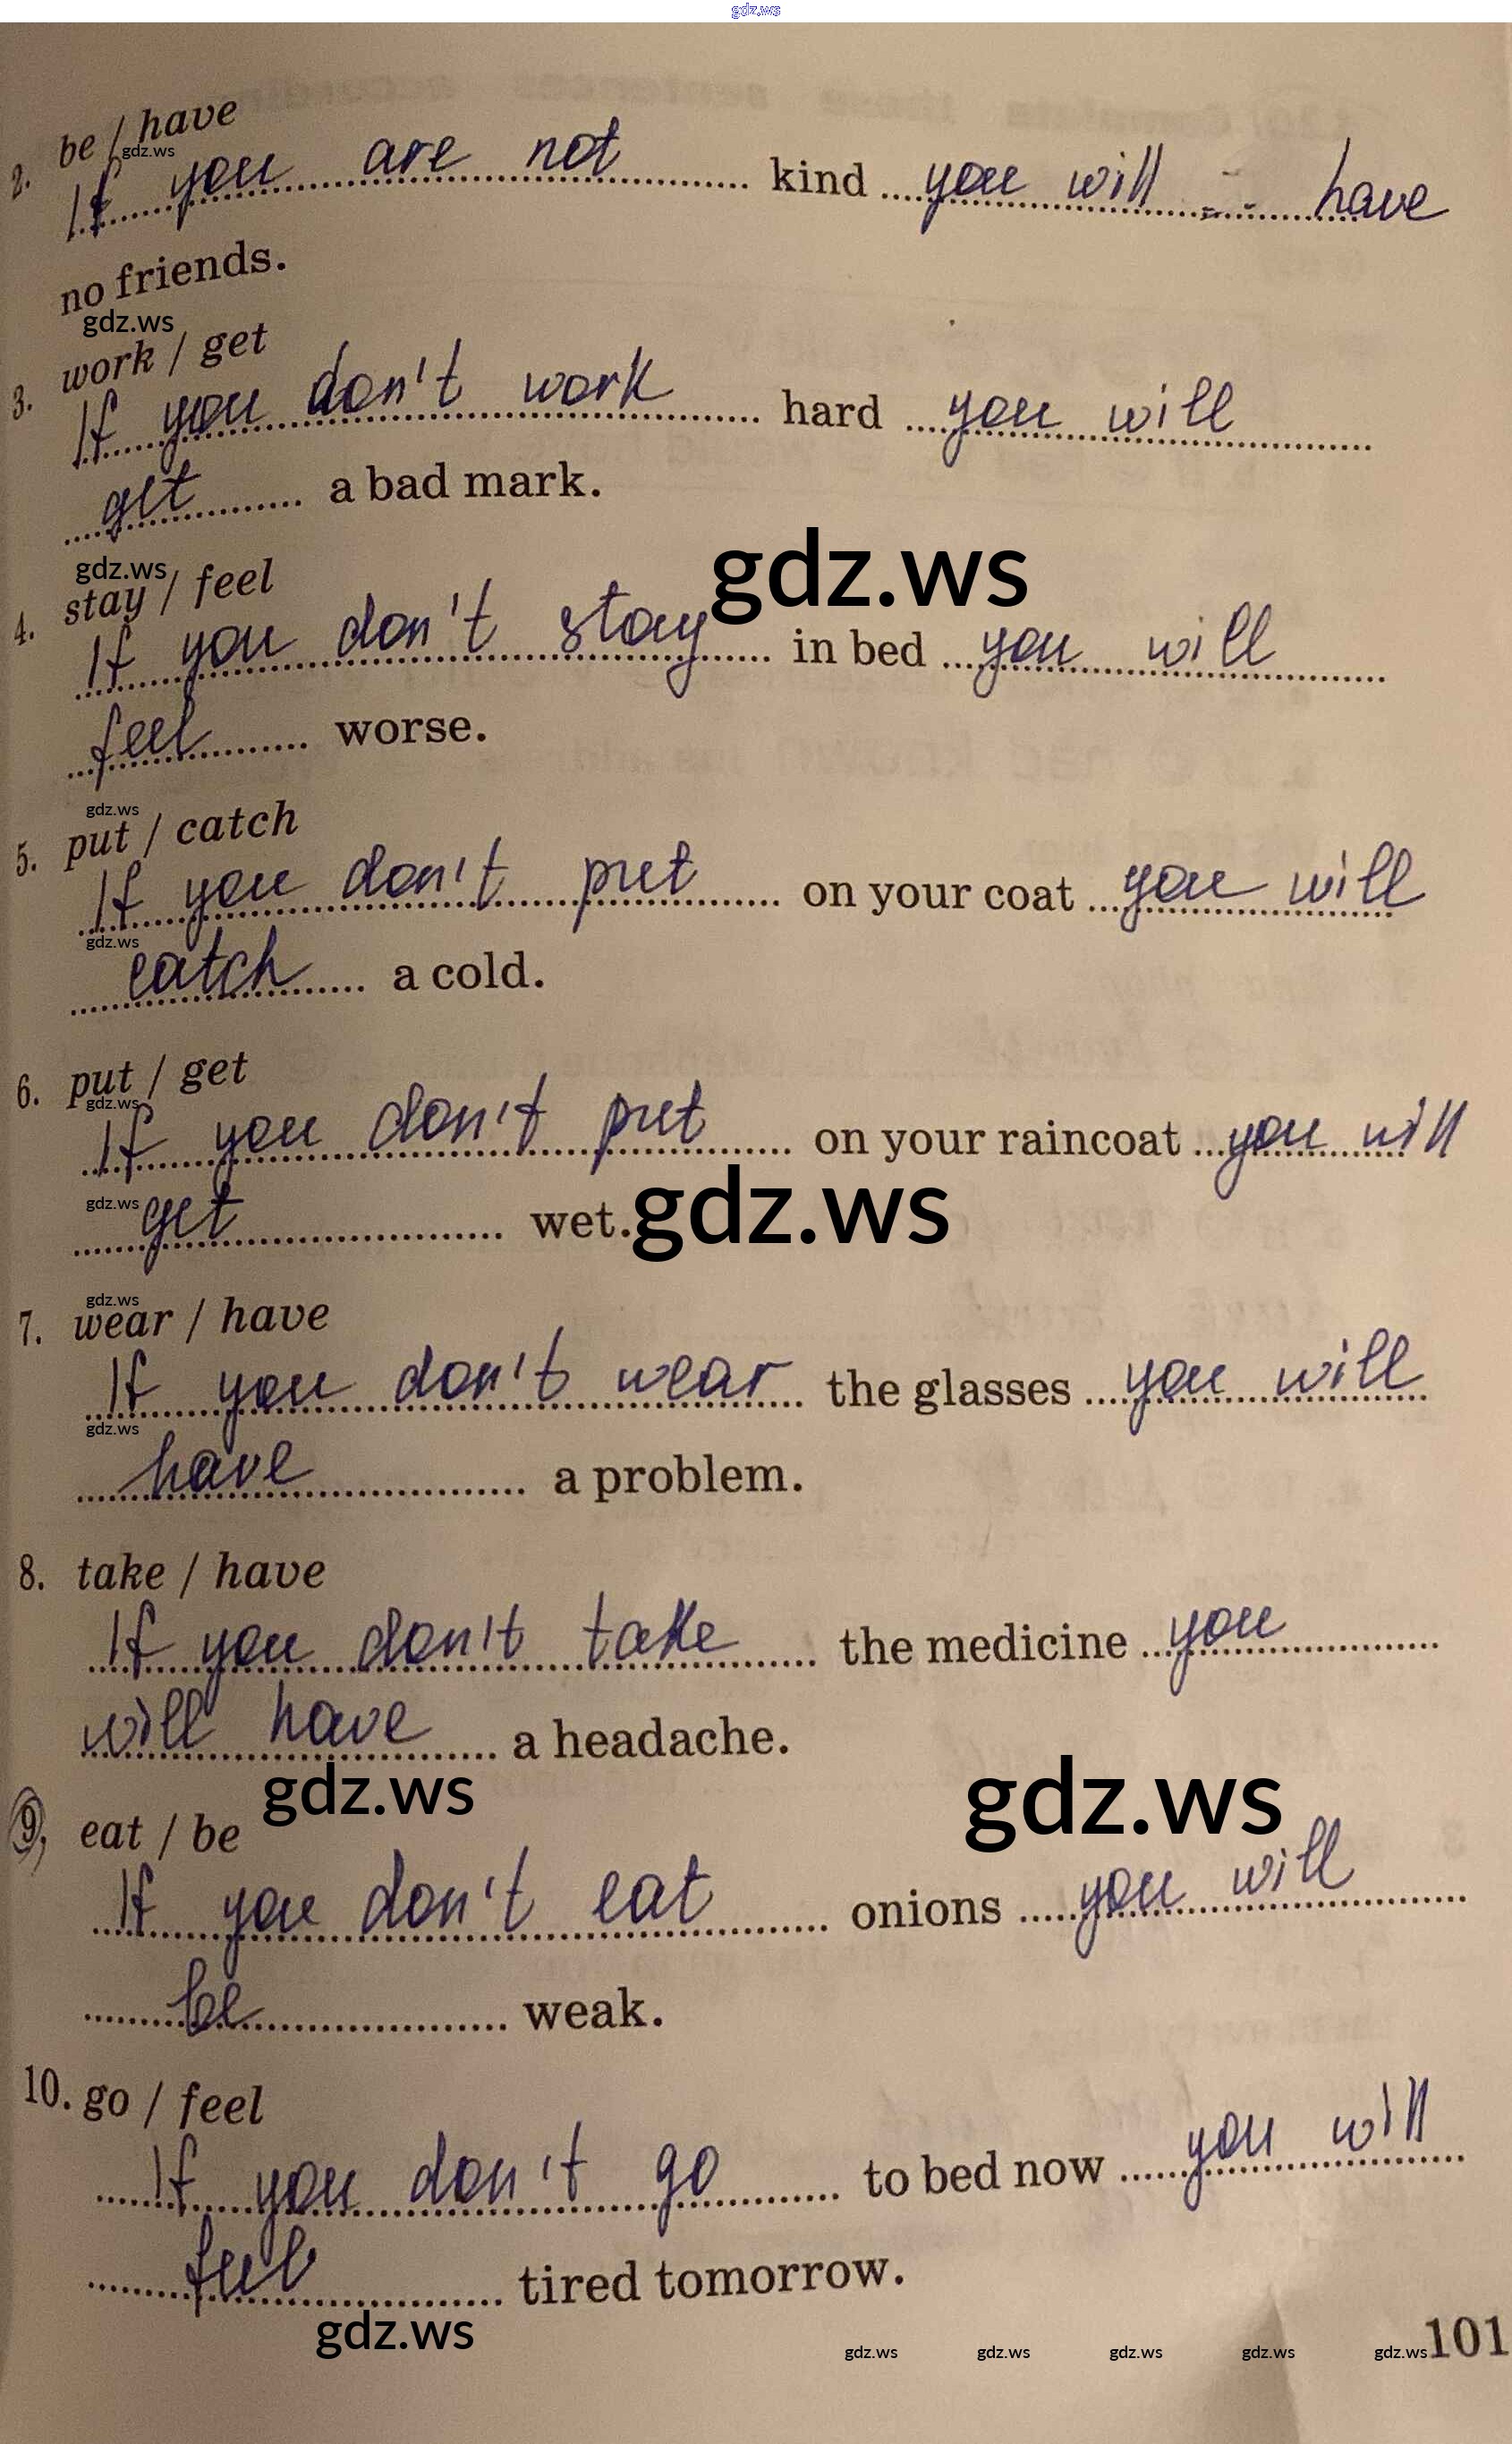 gdz.ws
2. be / have
gdz.ws
If you are not kind you will have
no friends.
gdz.ws
3. work / get
If you don't work hard you will
get a bad mark.
gdz.ws
gdz.ws
4. stay / feel
If you don't stay in bed you will
feel worse.
gdz.ws
5. put / catch
If you don't put on your coat you will
gdz.ws
catch a cold.
6. put / get
gdz.ws
If you don't put on your raincoat you will
gdz.ws
get wet.
gdz.ws
gdz.ws
7. wear / have
If you don't wear the glasses you will
gdz.ws
have a problem.
8. take / have
If you don't take the medicine you
will have a headache.
gdz.ws gdz.ws
9. eat / be
If you don't eat onions you will
be weak.
10. go / feel
If you don't go to bed now you will
feel tired tomorrow.
gdz.ws
gdz.ws gdz.ws gdz.ws gdz.ws gdz.ws
101